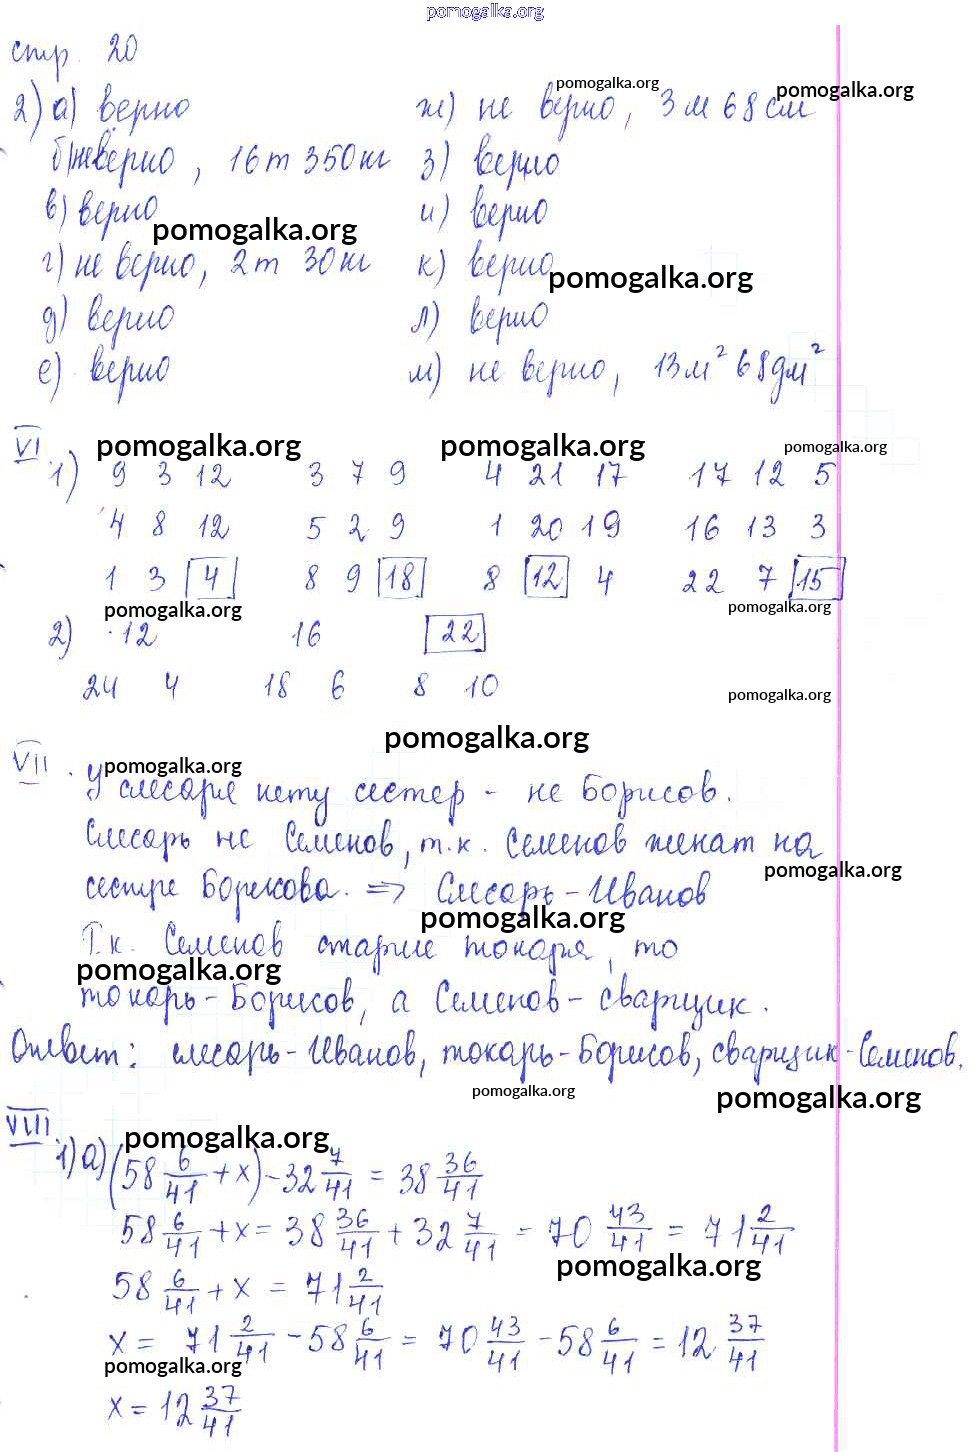 pomogalka.org
стр. 20
2) а) верно
ж) не верно, 3 м 68 см
pomogalka.org pomogalka.org
б) неверно, 16 т 350 кг
з) верно
в) верно
и) верно
pomogalka.org
г) не верно, 2 т 30 кг
к) верно
pomogalka.org
д) верно
л) верно
е) верно
м) не верно, 13 м² 68 дм²
VI. pomogalka.org pomogalka.org pomogalka.org
1) 9 3 12 3 7 9 4 21 17 17 12 5
4 8 12 5 2 9 1 20 19 16 13 3
1 3 4 8 9 18 8 12 4 22 7 15
pomogalka.org pomogalka.org
2) 12 16 22
24 4 18 6 8 10
pomogalka.org
pomogalka.org
VII. pomogalka.org
У слесаря нету сестер - не Борисов.
Слесарь не Семенов, т.к. Семенов женат на
pomogalka.org
сестре Борисова. => Слесарь - Иванов
pomogalka.org
Т.к. Семенов старше токаря, то
pomogalka.org
токарь - Борисов, а Семенов - сварщик.
Ответ: слесарь - Иванов, токарь - Борисов, сварщик - Семенов.
pomogalka.org pomogalka.org
VIII. pomogalka.org
1) а) (58 6/41 + x) - 32 7/41 = 38 36/41
58 6/41 + x = 38 36/41 + 32 7/41 = 70 43/41 = 71 2/41
pomogalka.org
58 6/41 + x = 71 2/41
x = 71 2/41 - 58 6/41 = 70 43/41 - 58 6/41 = 12 37/41
pomogalka.org
x = 12 37/41